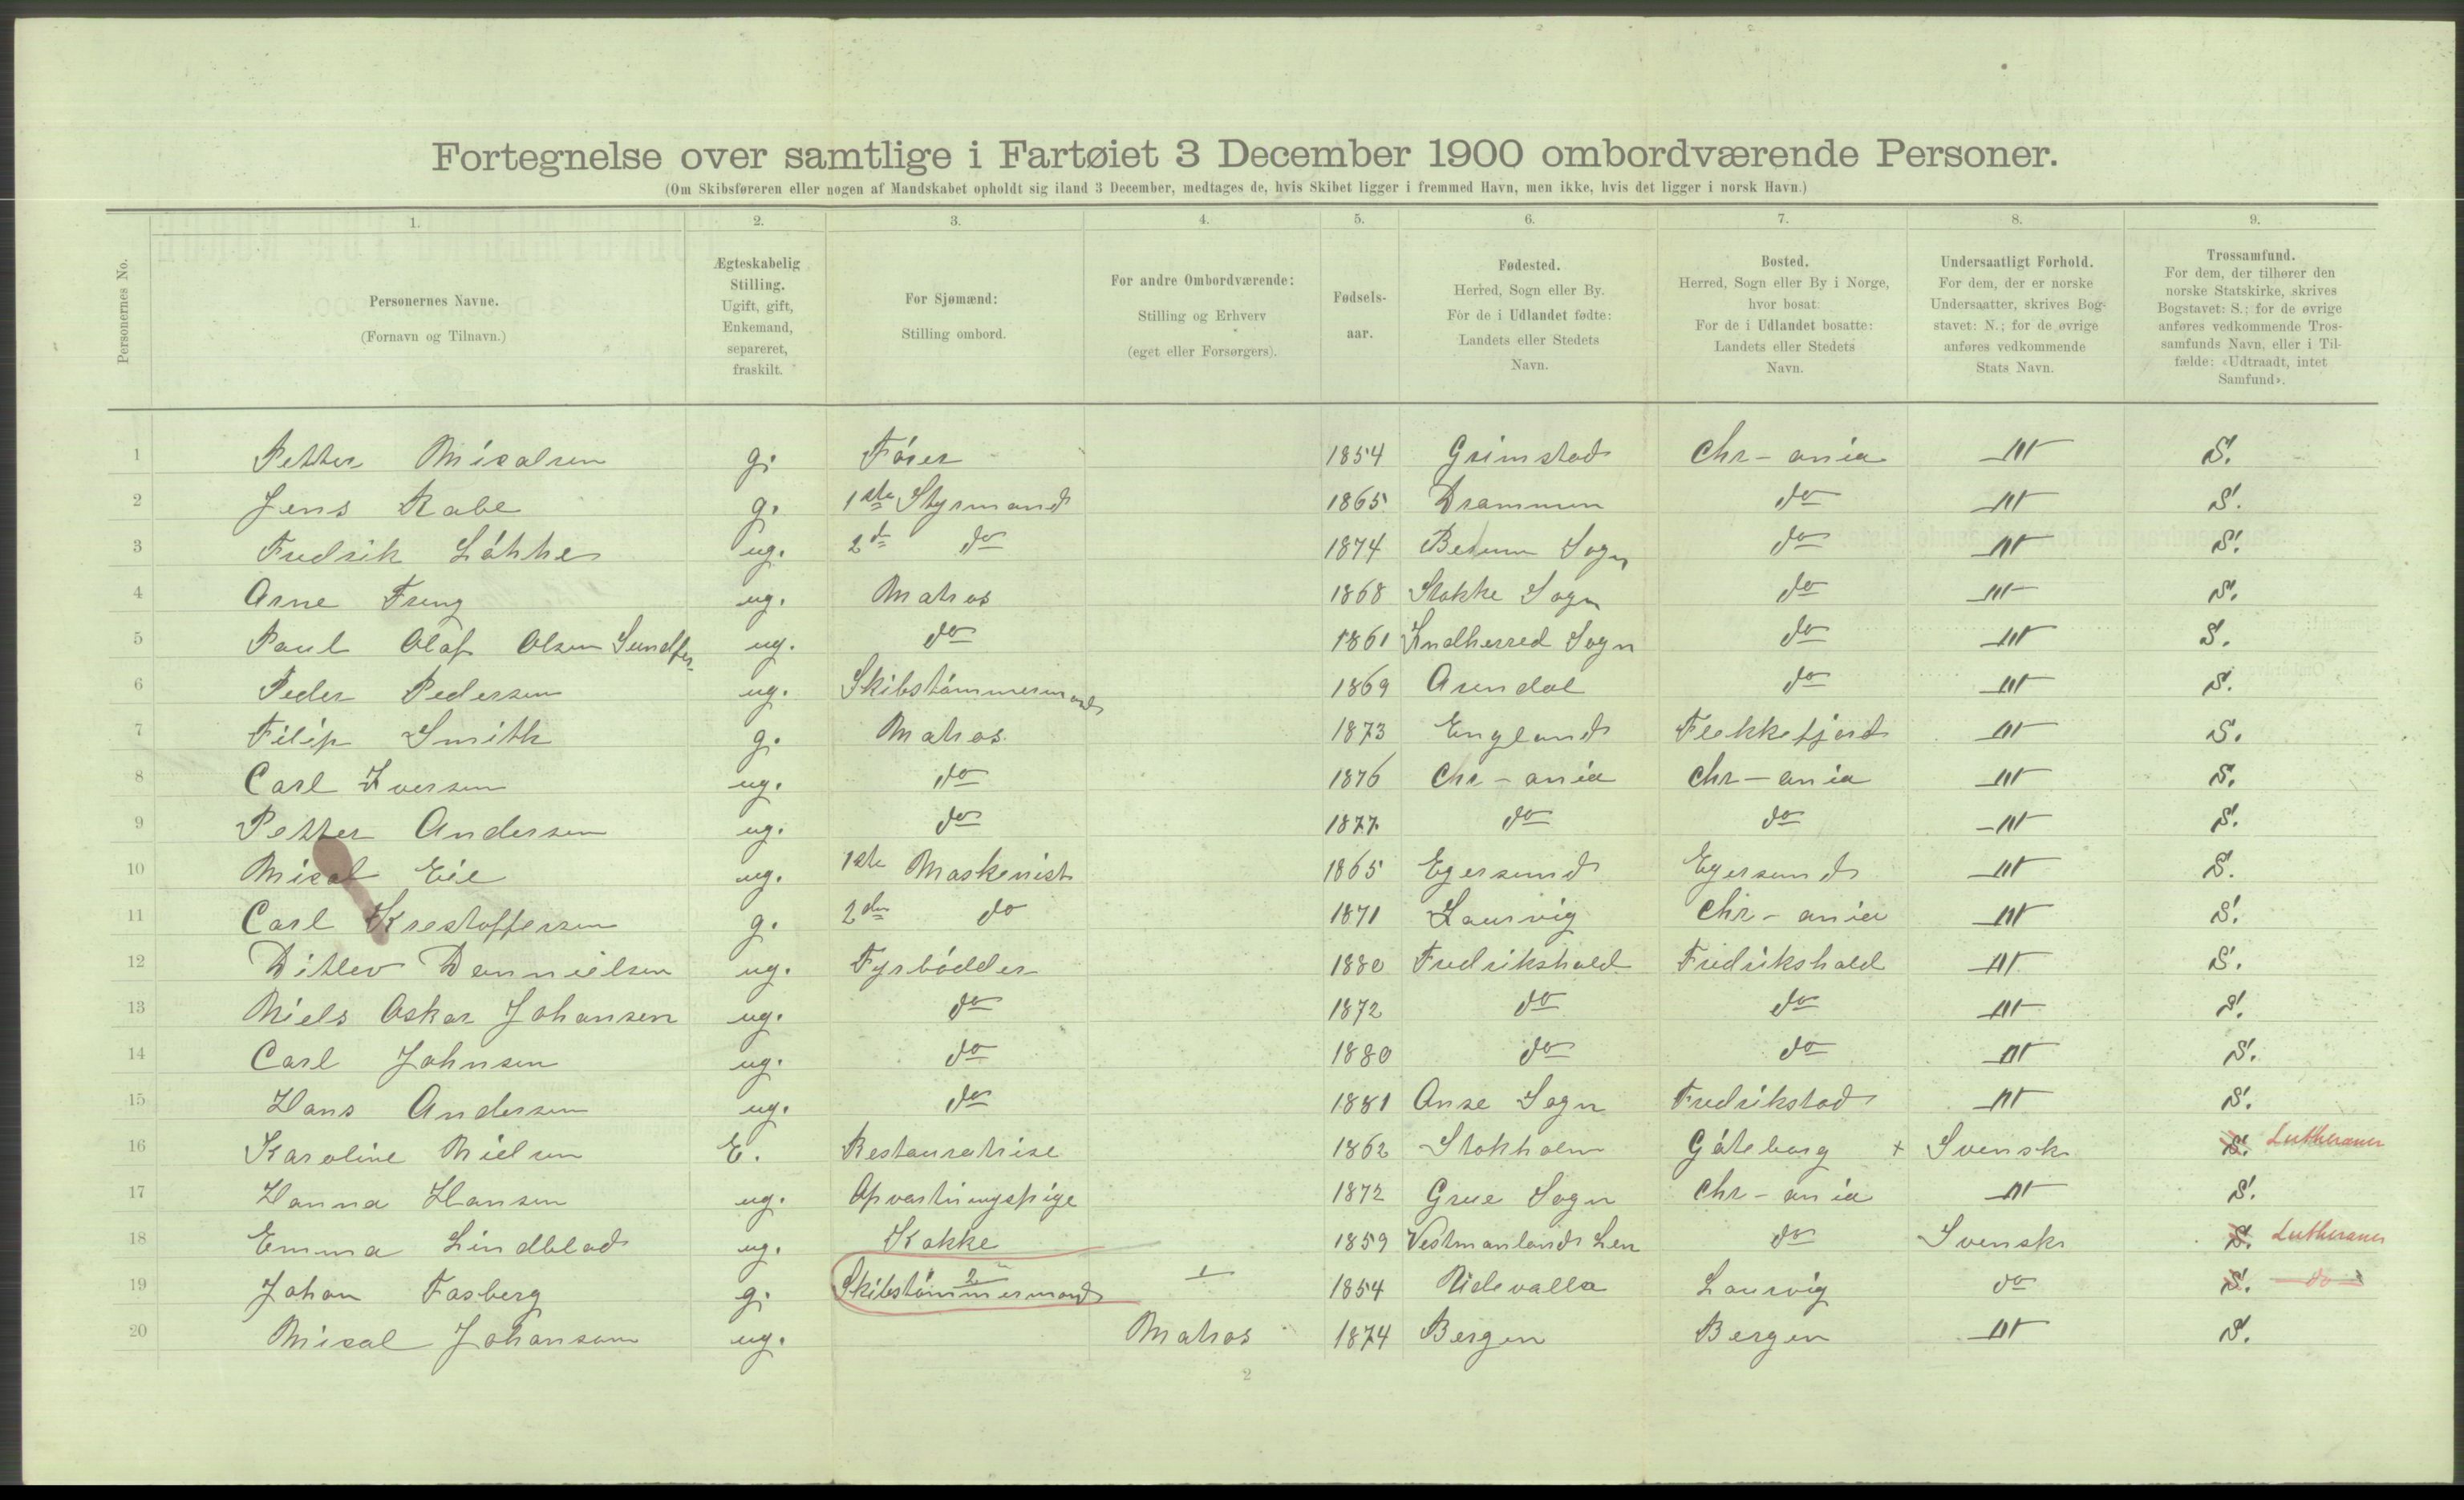 Fortegnelse over samtlige i Fartøiet 3 December 1900 ombordværende Personer.
(Om Skibsføreren eller nogen af Mandskabet opholdt sig iland 3 December, medtages de, hvis Skibet ligger i fremmed Havn, men ikke, hvis det ligger i norsk Havn.)
Personernes No.
1. Personernes Navne. (Fornavn og Tilnavn.)
2. Ægteskabelig Stilling. Ugift, gift, Enkemand, separeret, fraskilt.
3. For Sjømænd: Stilling ombord.
4. For andre Ombordværende: Stilling og Erhverv (eget eller Forsørgers).
5. Fødsels-aar.
6. Fødested. Herred, Sogn eller By. For de i Udlandet fødte: Landets eller Stedets Navn.
7. Bosted. Herred, Sogn eller By i Norge, hvor bosat. For de i Udlandet bosatte: Landets eller Stedets Navn.
8. Undersaatligt Forhold. For dem, der er norske Undersaatter, skrives Bogstavet: N.; for de øvrige anføres vedkommende Stats Navn.
9. Trossamfund. For dem, der tilhører den norske Statskirke, skrives Bogstavet: S.; for de øvrige anføres vedkommende Trossamfunds Navn, eller i Tilfælde: «Udtraadt, intet Samfund».
1 Petter Misalsen g. Fører 1854 Grimstad Chr-ania N S.
2 Jens Rabe g. 1ste Styrmand 1865 Drammen do N S.
3 Fredrik Løkke ug. 2d do 1874 Berum Sogn do N S.
4 Arne Freng ug. Matros 1868 Stokke Sogn do N S.
5 Paul Olaf Olsen ug. do 1861 Sogn do N S.
6 Peder Pedersen ug. Skibstømmermand 1869 Arendal do N S.
7 Filip Smith g. Matros 1873 England Flekkefjord N S.
8 Carl Iversen ug. do 1876 Chr-ania Chr-ania N S.
9 Petter Andersen ug. do 1877 do do N S.
10 Misal Eie ug. 1ste Maskenist 1865 Egersund Egersund N S.
11 Carl Krestoffersen g. 2den do 1871 Laurvig Chr-ania N S.
12 Ditlev Dannielsen ug. Fyrbødder 1880 Fredrikshald Fredrikshald N S.
13 Niels Oskar Johansen ug. do 1872 do do N S.
14 Carl Johnsen ug. do 1880 do do N S.
15 Hans Andersen ug. do 1881 Onsø Sogn Fredrikstad N S.
16 Karoline Nielsen E. Restauratrise 1862 Stokholm Gøteborg + Svensk S. Lutheraner
17 Hanna Hansen ug. Opvartningspige 1872 Grue Sogn Chr-ania N S.
18 Emma Lindblad ug. Kokke 1859 Vestmanlands Len do Svensk S. Lutheraner
19 Johan Fasberg g. Skibstømmermand 1854 Udevalla Laurvig do S. do
20 Misal Johansom ug. Matros 1874 Bergen Bergen N S.
2